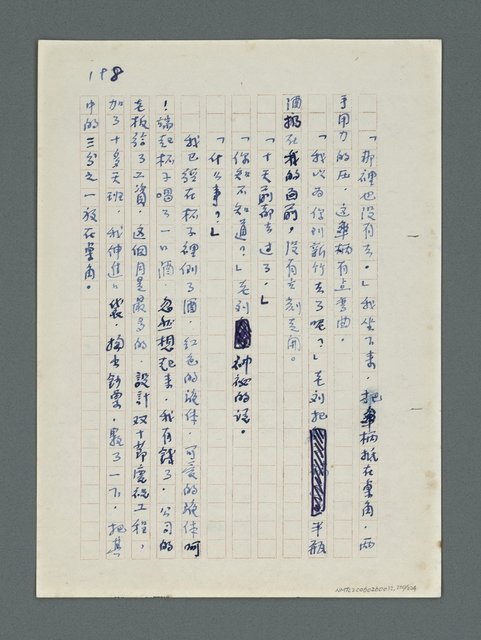 198
「那裡也沒有去。」我坐下來,把傘柄抵在桌角,兩
手用力的压,这傘柄有点弯曲。
「我以為你到新竹去了呢?」老刘把半瓶
酒挪在我的面前,沒有立刻走開。
「十天前都去过了。」
「你知不知道?」老刘神祕的说。
「什么事?」
我已经在杯子裡倒了酒,红色的液体,可爱的液体啊
!端起杯子喝了一口酒,忽然想起来,我有錢了,公司的
老板给了工資,这個月是最多的,設計双十節電視工程,
加了十多天班,我伸進口袋,掏出鈔票,點了一下,把其
中的三分之一放在桌角。